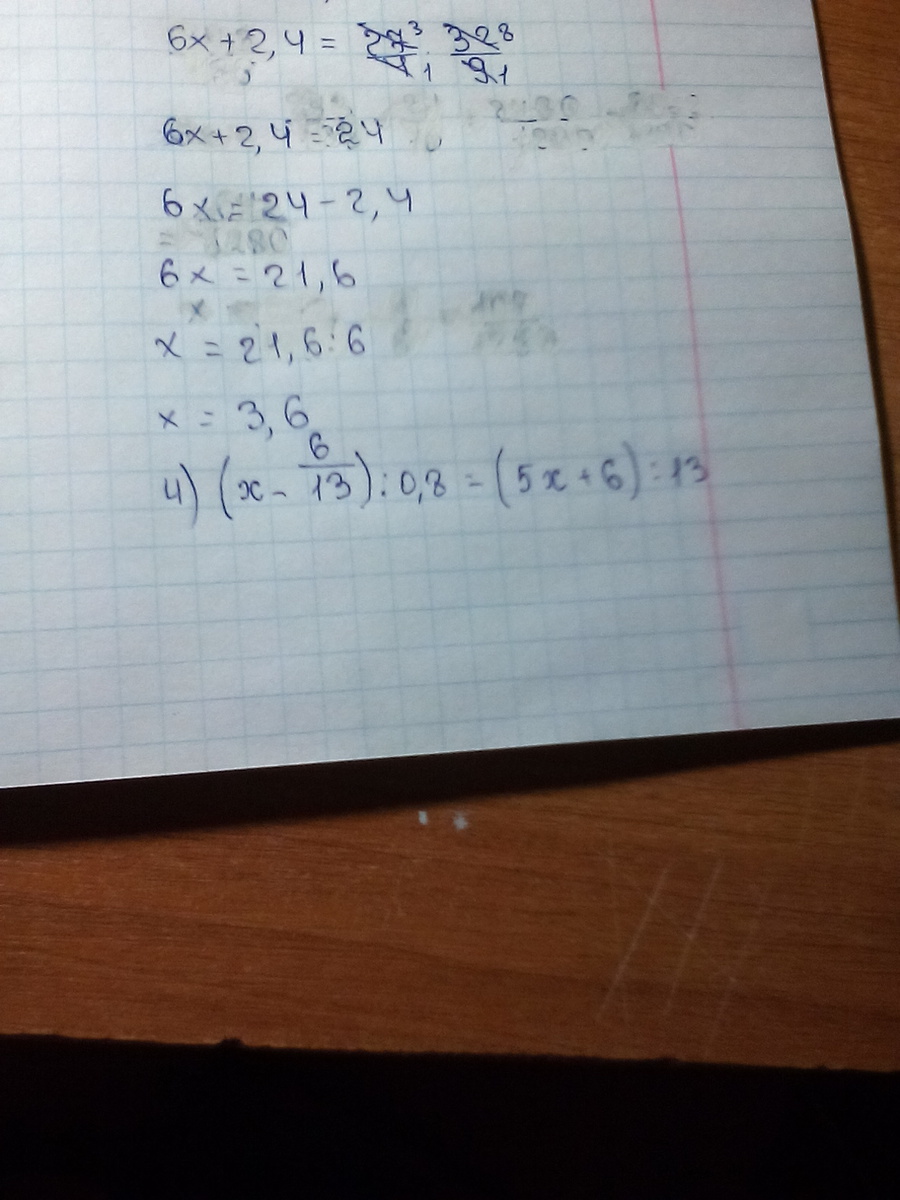 6x + 2,4 = 27³/4₁ · 32⁸/9₁
6x + 2,4 = 24
6x = 24 - 2,4
6x = 21,6
x = 21,6 : 6
x = 3,6
4) (x - 6/13) : 0,8 = (5x + 6) : 13